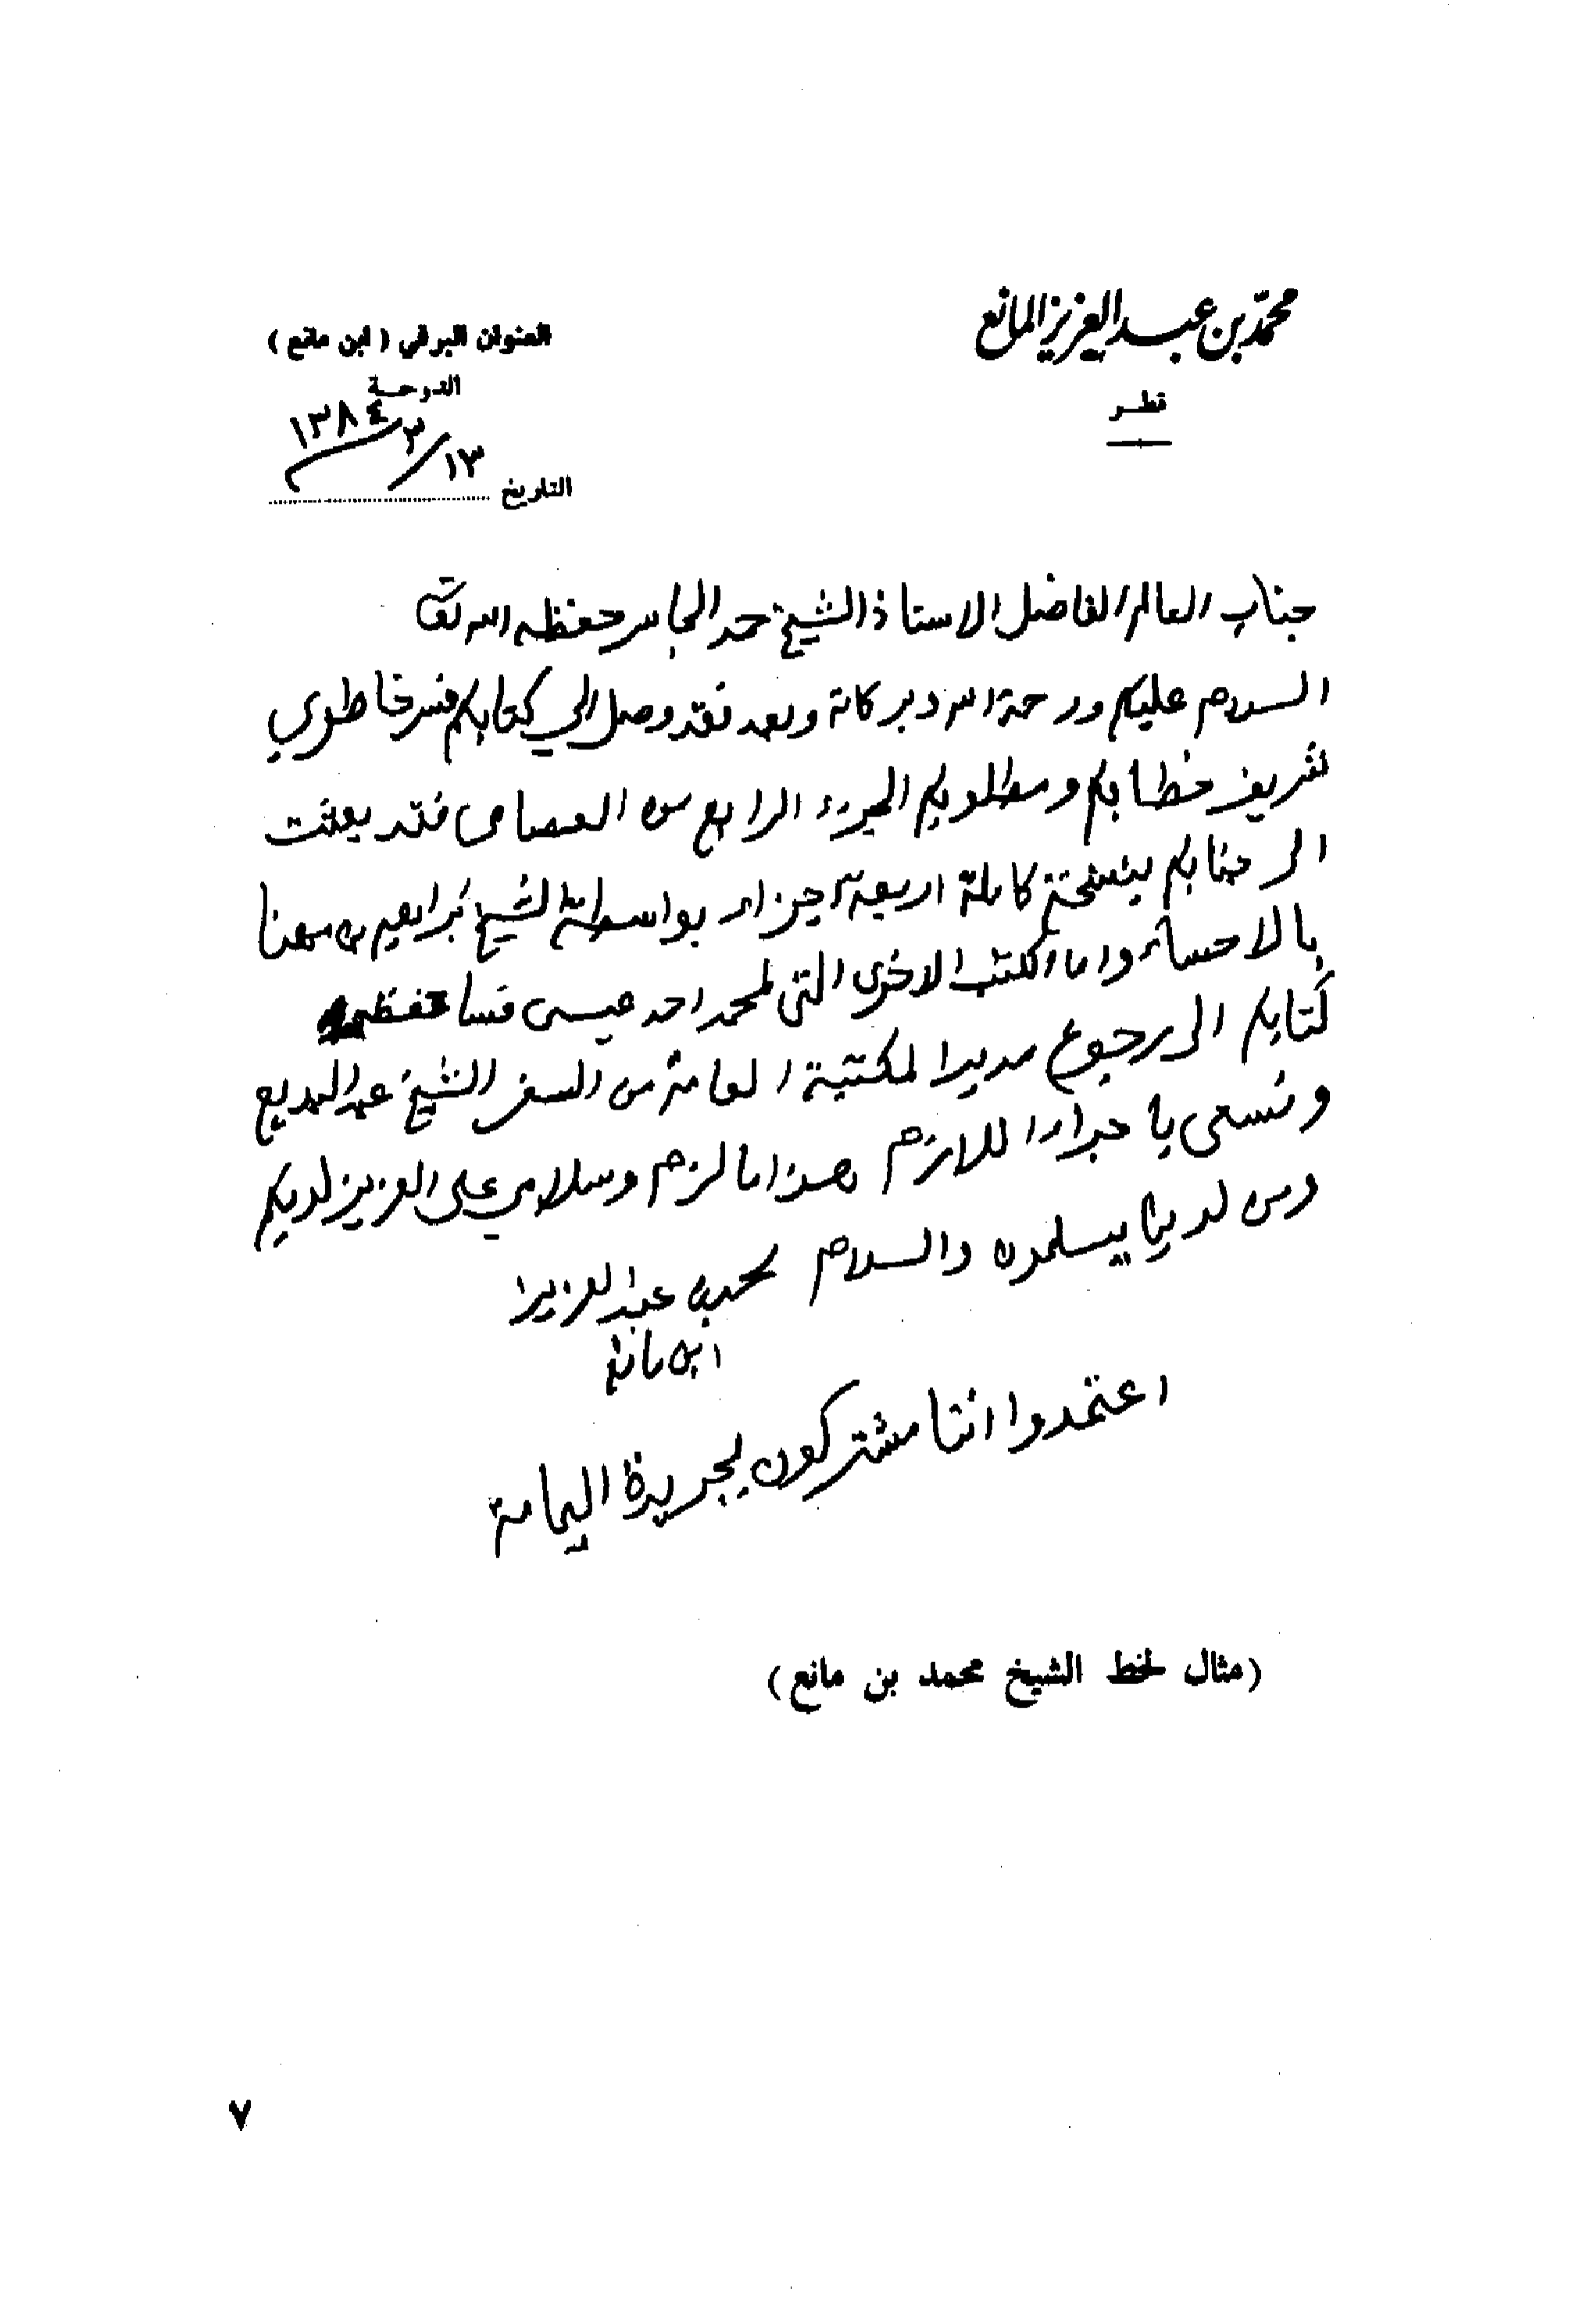 محمد بن عبد العزيز المانع
قطر
العنوان البرقي (ابن مانع)
الدوحة
التاريخ ١٣/٣/١٣٨٤
جناب العالم الفاضل الاستاذ الشيخ حمد الجاسر حفظه الله تعالى
السلام عليكم ورحمة الله وبركاته وبعد فقد وصل الي كتابكم فسر خاطري
شريف خطابكم ومطلوبكم الجزء الرابع من العصامي فقد بعثت
الى جنابكم بنسخة كاملة اربعة اجزاء بواسطة الشيخ ابراهيم بن مهنا
بالاحساء واما الكتب الاخرى التي لمحمد احمد عيسى فسأحفظ
كتابكم الى رجوع مدير المكتبة العامة من السفر الشيخ عبد البديع
ونسعى باجراء اللازم هذا ما لزم وسلامي على العزيز لديكم
ومن لدينا يسلمون والسلام محبكم عبد العزيز
ابن مانع
اعتمدوا اننا مشتركون بجريدة اليمامة
(مثال لخط الشيخ محمد بن مانع)
٧